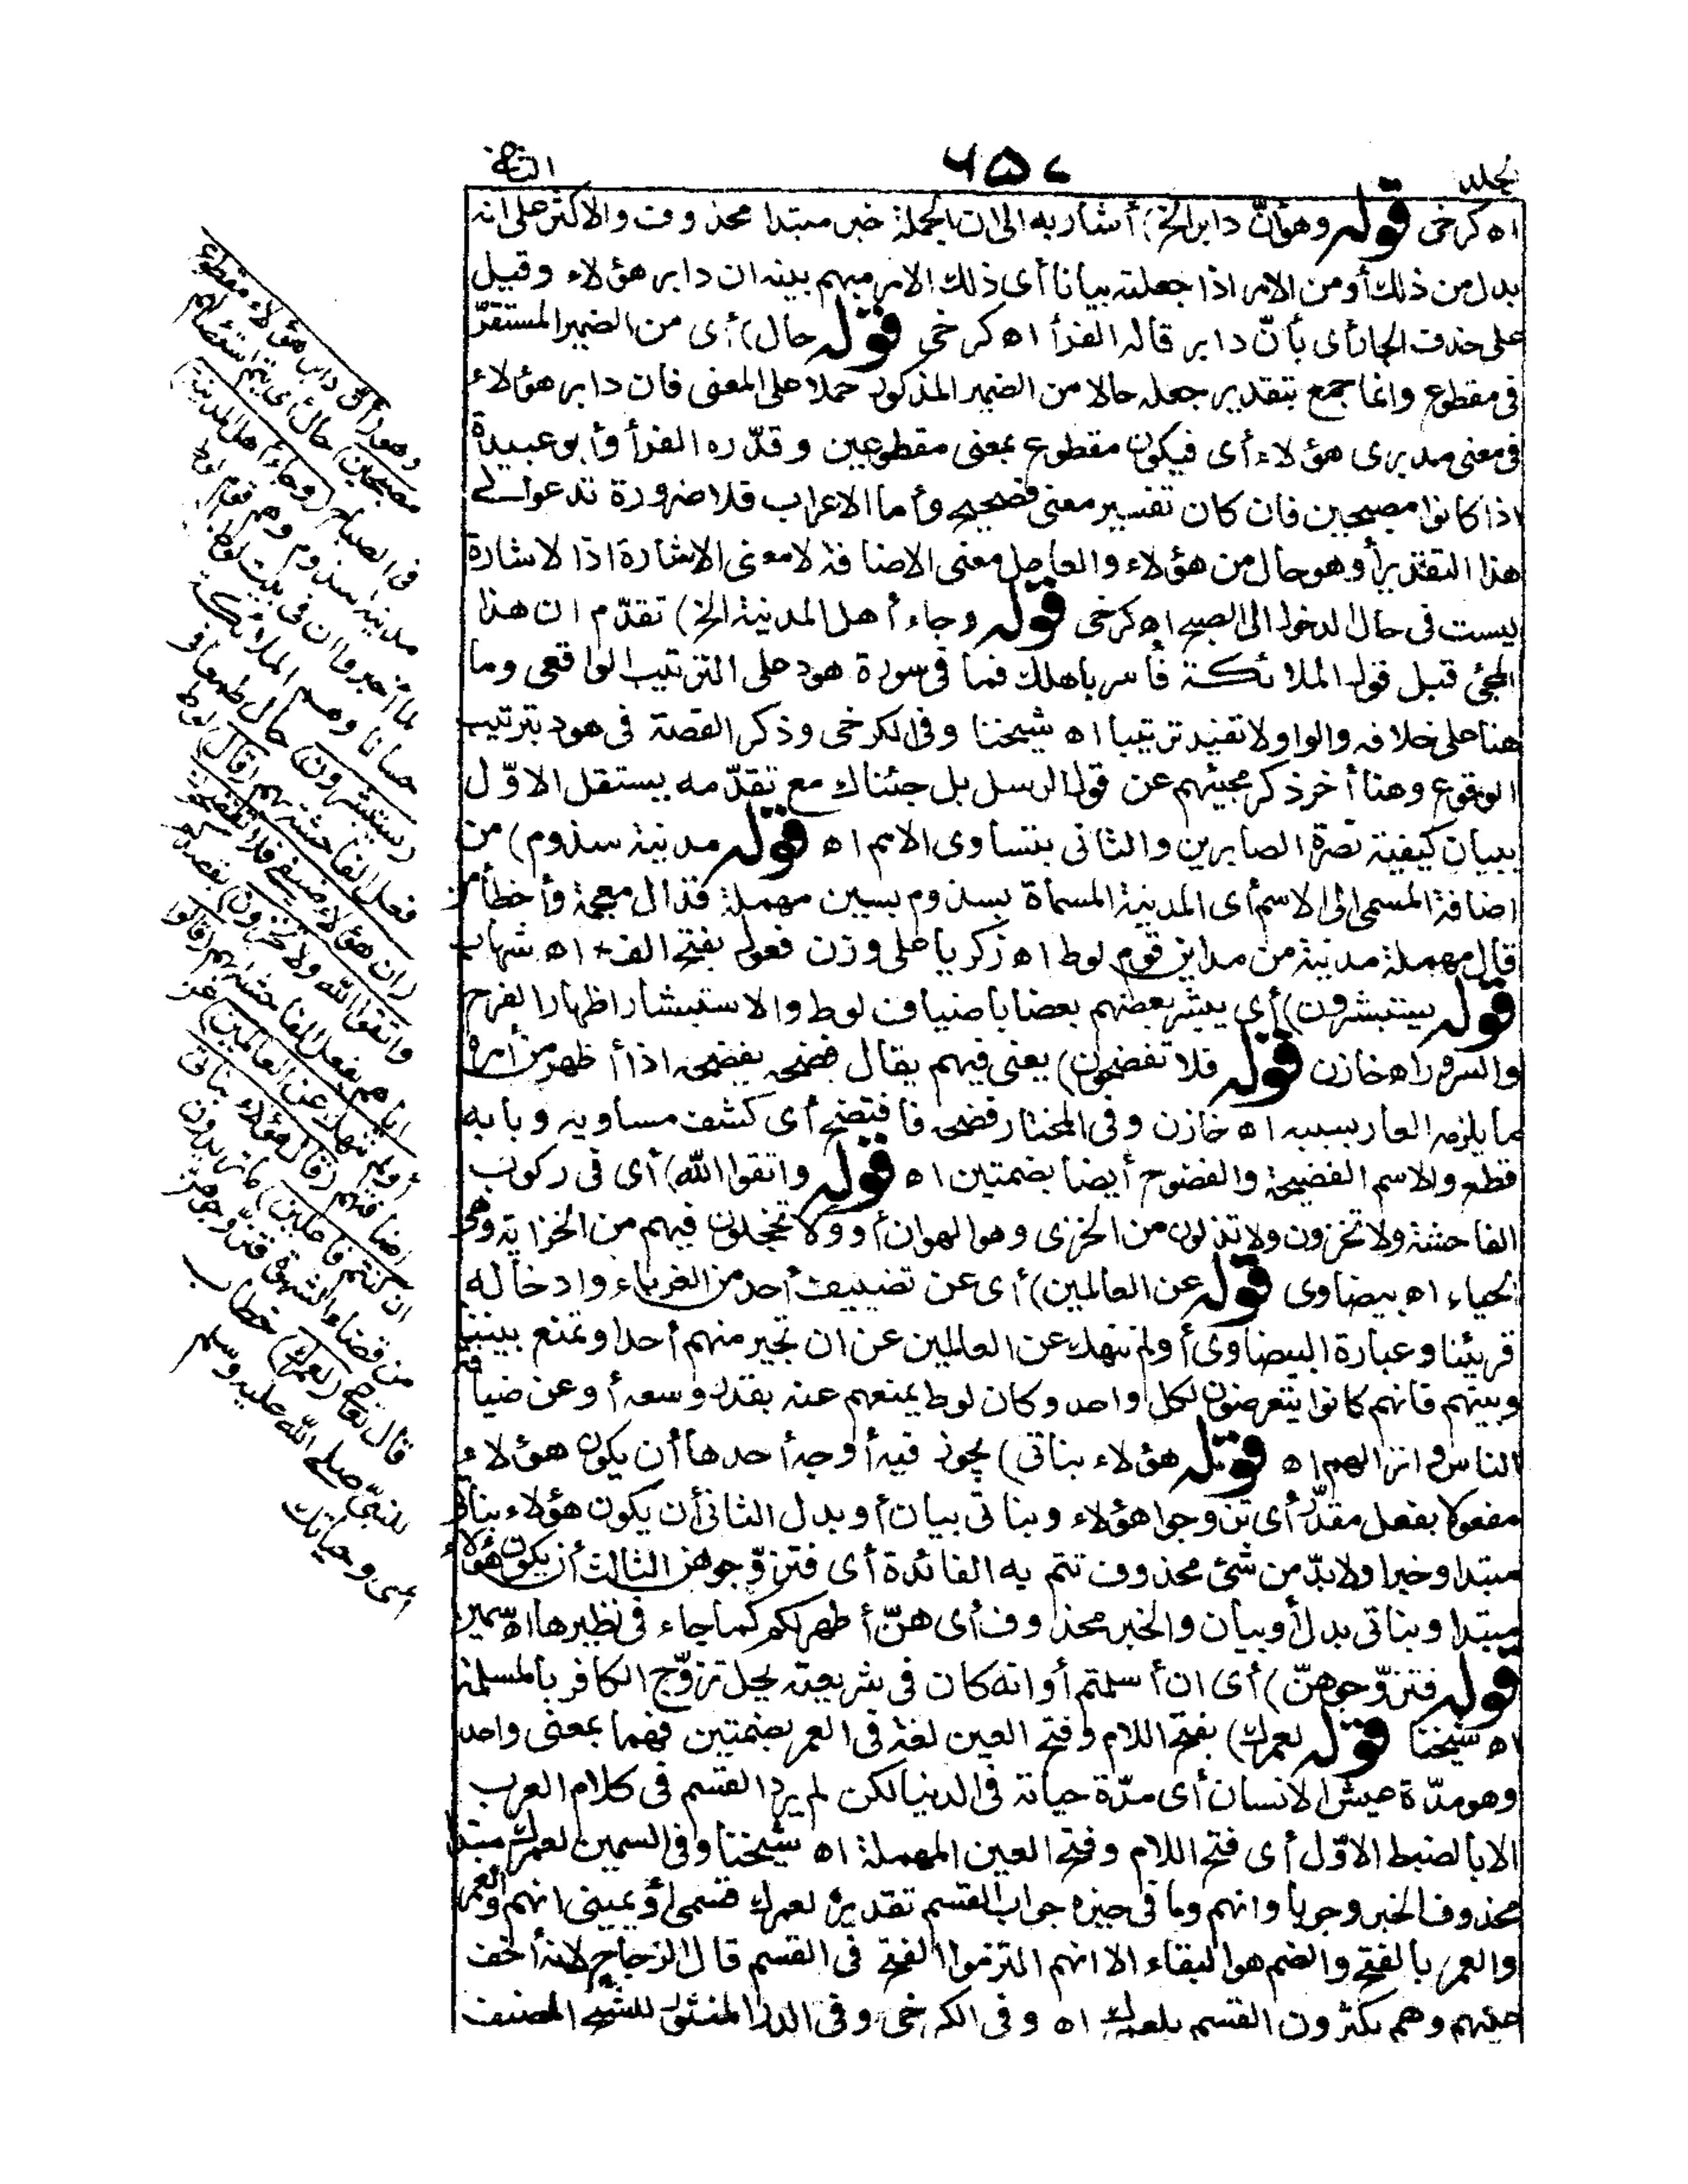 الثانى ٦٥٧ المجلد
اه كرخى قوله وهو أنّ دابر الخ) أشار به الى ان الجملة خبر مبتدا محذوف والاكثر على انه
بدل من ذلك أو من الامر اذا جعلته بيانا أى ذلك الامر مبهم بينه ان دابر هؤلاء وقيل
على حذف الجار أى بأنّ دابر قاله الفرأ اه كرخى قوله حال) أى من الضمير المستقرّ
فى مقطوع وانما جمع بتقدير جعله حالا من الضمير المذكور حملا على المعنى فان دابر هؤلاء
فى معنى مدبرى هؤلاء أى فيكون مقطوع بمعنى مقطوعين وقدّره الفرأ وأبو عبيدة
اذا كانوا مصبحين فان كان تفسير معنى فصحيح وأما الاعراب فلا ضرورة تدعو الى
هذا التقدير أو هو حال من هؤلاء والعامل معنى الاضافة لا معنى الاشارة اذا لاشارة
ليست فى حال الدخول الى الصبح اه كرخى قوله وجاء أهل المدينة الخ) تقدّم ان هذا
المجئ قبل قول الملائكة فأسر باهلك فما فى سورة هود على الترتيب الواقعى وما
هنا على خلافه والواو لا تفيد ترتيبا اه شيخنا وفى الكرخى وذكر القصة فى هود بترتيب
الوقوع وهنا أخر ذكر مجيئهم عن قول الرسل بل جئناك مع تقدّمه ليستقل الاوّل
ببيان كيفية نصرة الصابرين والثانى بتساوى الامم اه قوله مدينة سذوم) من
اضافة المسمى الى الاسم أى المدينة المسماة بسذوم بسين مهملة فذال معجمة وأخطأ من
قال مهملة مدينة من مداين قوم لوط اه زكريا على وزن فعول بفتح الفاء اه شهاب
قوله يستبشرون) أى يبشر بعضهم بعضا باضياف لوط والاستبشار اظهار الفرح
والسرور اه خازن قوله فلا تفضحون) يعنى فيهم يقال فضحه يفضحه اذا أظهر من أمره
ما يلزمه العار بسببه اه خازن وفى المختار فضحه فافتضح أى كشف مساويه وبابه
قطع والاسم الفضيحة والفضوح أيضا بضمتين اه قوله واتقوا الله) أى فى ركوب
الفاحشة ولا تخزون ولا تذلون من الخزى وهو الهوان أو ولا تخجلون فيهم من الخزاية وهى
الحياء اه بيضاوى قوله عن العالمين) أى عن تضييف أحد من الغرباء وادخاله
قريتنا وعبارة البيضاوى أولم ننهك عن العالمين عن ان تجير منهم أحدا وتمنع بيننا
وبينهم فانهم كانوا يتعرضون لكل واحد وكان لوط يمنعهم عنه بقدر وسعه أو عن ضيافة
الناس وانزالهم اه قوله هؤلاء بناتى) يجوز فيه أوجه أحدها أن يكون هؤلاء
مفعولا بفعل مقدّر أى تزوجوا هؤلاء وبناتى بيان أو بدل الثانى أن يكون هؤلاء بناتى
مبتدا وخبرا ولا بدّ من شئ محذوف تتم به الفائدة أى فتزوّجوهن الثالث أن يكون هؤلاء
مبتدا وبناتى بدل أو بيان والخبر محذوف أى هنّ أطهر لكم كما جاء فى نظيرها اه سمين
قوله فتزوّجوهنّ) أى ان أسلمتم أو انه كان فى شريعته يحل تزوّج الكافر بالمسلمة
اه شيخنا قوله لعمرك) بفتح اللام وفتح العين لغة فى العمر بضمتين فهما بمعنى واحد
وهو مدّة عيش الانسان أى مدّة حياته فى الدنيا لكن لم يرد القسم فى كلام العرب
الا بالضبط الاوّل أى فتح اللام وفتح العين المهملة اه شيخنا وفى السمين لعمرك مبتدا
محذوف الخبر وجوبا وانهم وما فى حيزه جواب القسم تقديره لعمرك قسمى أو يمينى انهم والعمر
والعمر بالفتح والضم هو البقاء الا انهم التزموا الفتح فى القسم قال الزجاج لانه أخف
عليهم وهم يكثرون القسم بلعمرك اه وفى الكرخى وفى الدر المنثور للشيخ المصنف
وهو (أنّ دابر هؤلاء مقطوع
مصبحين) حال أى يتم استئصالهم
فى الصباح (وجاء أهل المدينة)
مدينة سذوم وهم قوم لوط
لما أخبروا ان فى بيت لوط
حسانا وهم الملائكة
(يستبشرون) حال طمعا فى
فعل الفاحشة بهم (قال) لوط
(ان هؤلاء ضيفى فلا تفضحون
واتقوا الله ولا تخزون) بقصدكم
اياهم بفعل الفاحشة بهم (قالوا
أولم ننهك عن العالمين) عن
اضافتهم (قال هؤلاء بناتى
ان كنتم فاعلين) ما تريدون
من قضاء الشهوة فتزوّجوهنّ
قال تعالى (لعمرك) خطاب
للنبىّ صلى الله عليه وسلم
أى وحياتك